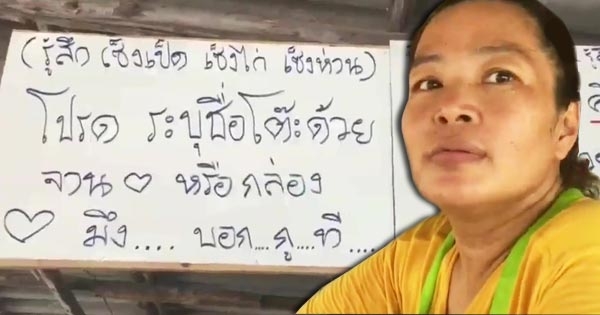 (รู้สึก เซ็งเป็ด เซ็งไก่ เซ็งห่าน)
โปรด ระบุชื่อโต๊ะด้วย
จาน♡ หรือกล่อง
♡ มึง.... บอก....กู....ที....